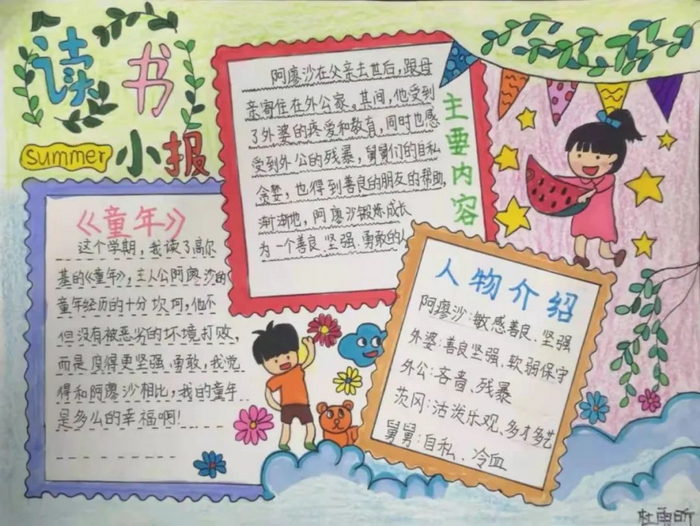 读书
summer 小报
《童年》
这个学期，我读了高尔
基的《童年》，主人公阿廖沙的
童年经历的十分坎坷，他不
但没有被恶劣的环境打败，
而是变得更坚强、勇敢，我觉
得和阿廖沙相比，我的童年
是多么的幸福啊！
阿廖沙在父亲去世后，跟母
亲寄住在外公家。其间，他受到
了外婆的疼爱和教育，同时也感
受到外公的残暴，舅舅们的自私
贪婪，也得到善良的朋友的帮助，
渐渐地，阿廖沙锻炼成长
为一个善良、坚强、勇敢的人
主要内容
人物介绍
阿廖沙：敏感善良、坚强
外婆：善良坚强、软弱保守
外公：吝啬、残暴
茨冈：活泼乐观、多才多艺
舅舅：自私、冷血